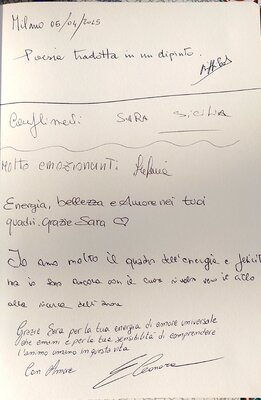 Milano 05/04/2025
Poesia tradotta in un dipinto.
Complimenti SARA SICILIA
Molto emozionanti Stefania
Energia, bellezza e Amore nei tuoi
quadri. Grazie Sara ♡
Io amo molto il quadro dell'energia e felicità
ma io sono ancora con il cuore rivolto verso il cielo
alla ricerca dell'amore
Grazie Sara per la tua energia di amore universale
che emani e per la tua sensibilità di comprendere
l'animo umano in questa vita
Con Amore Eleonora